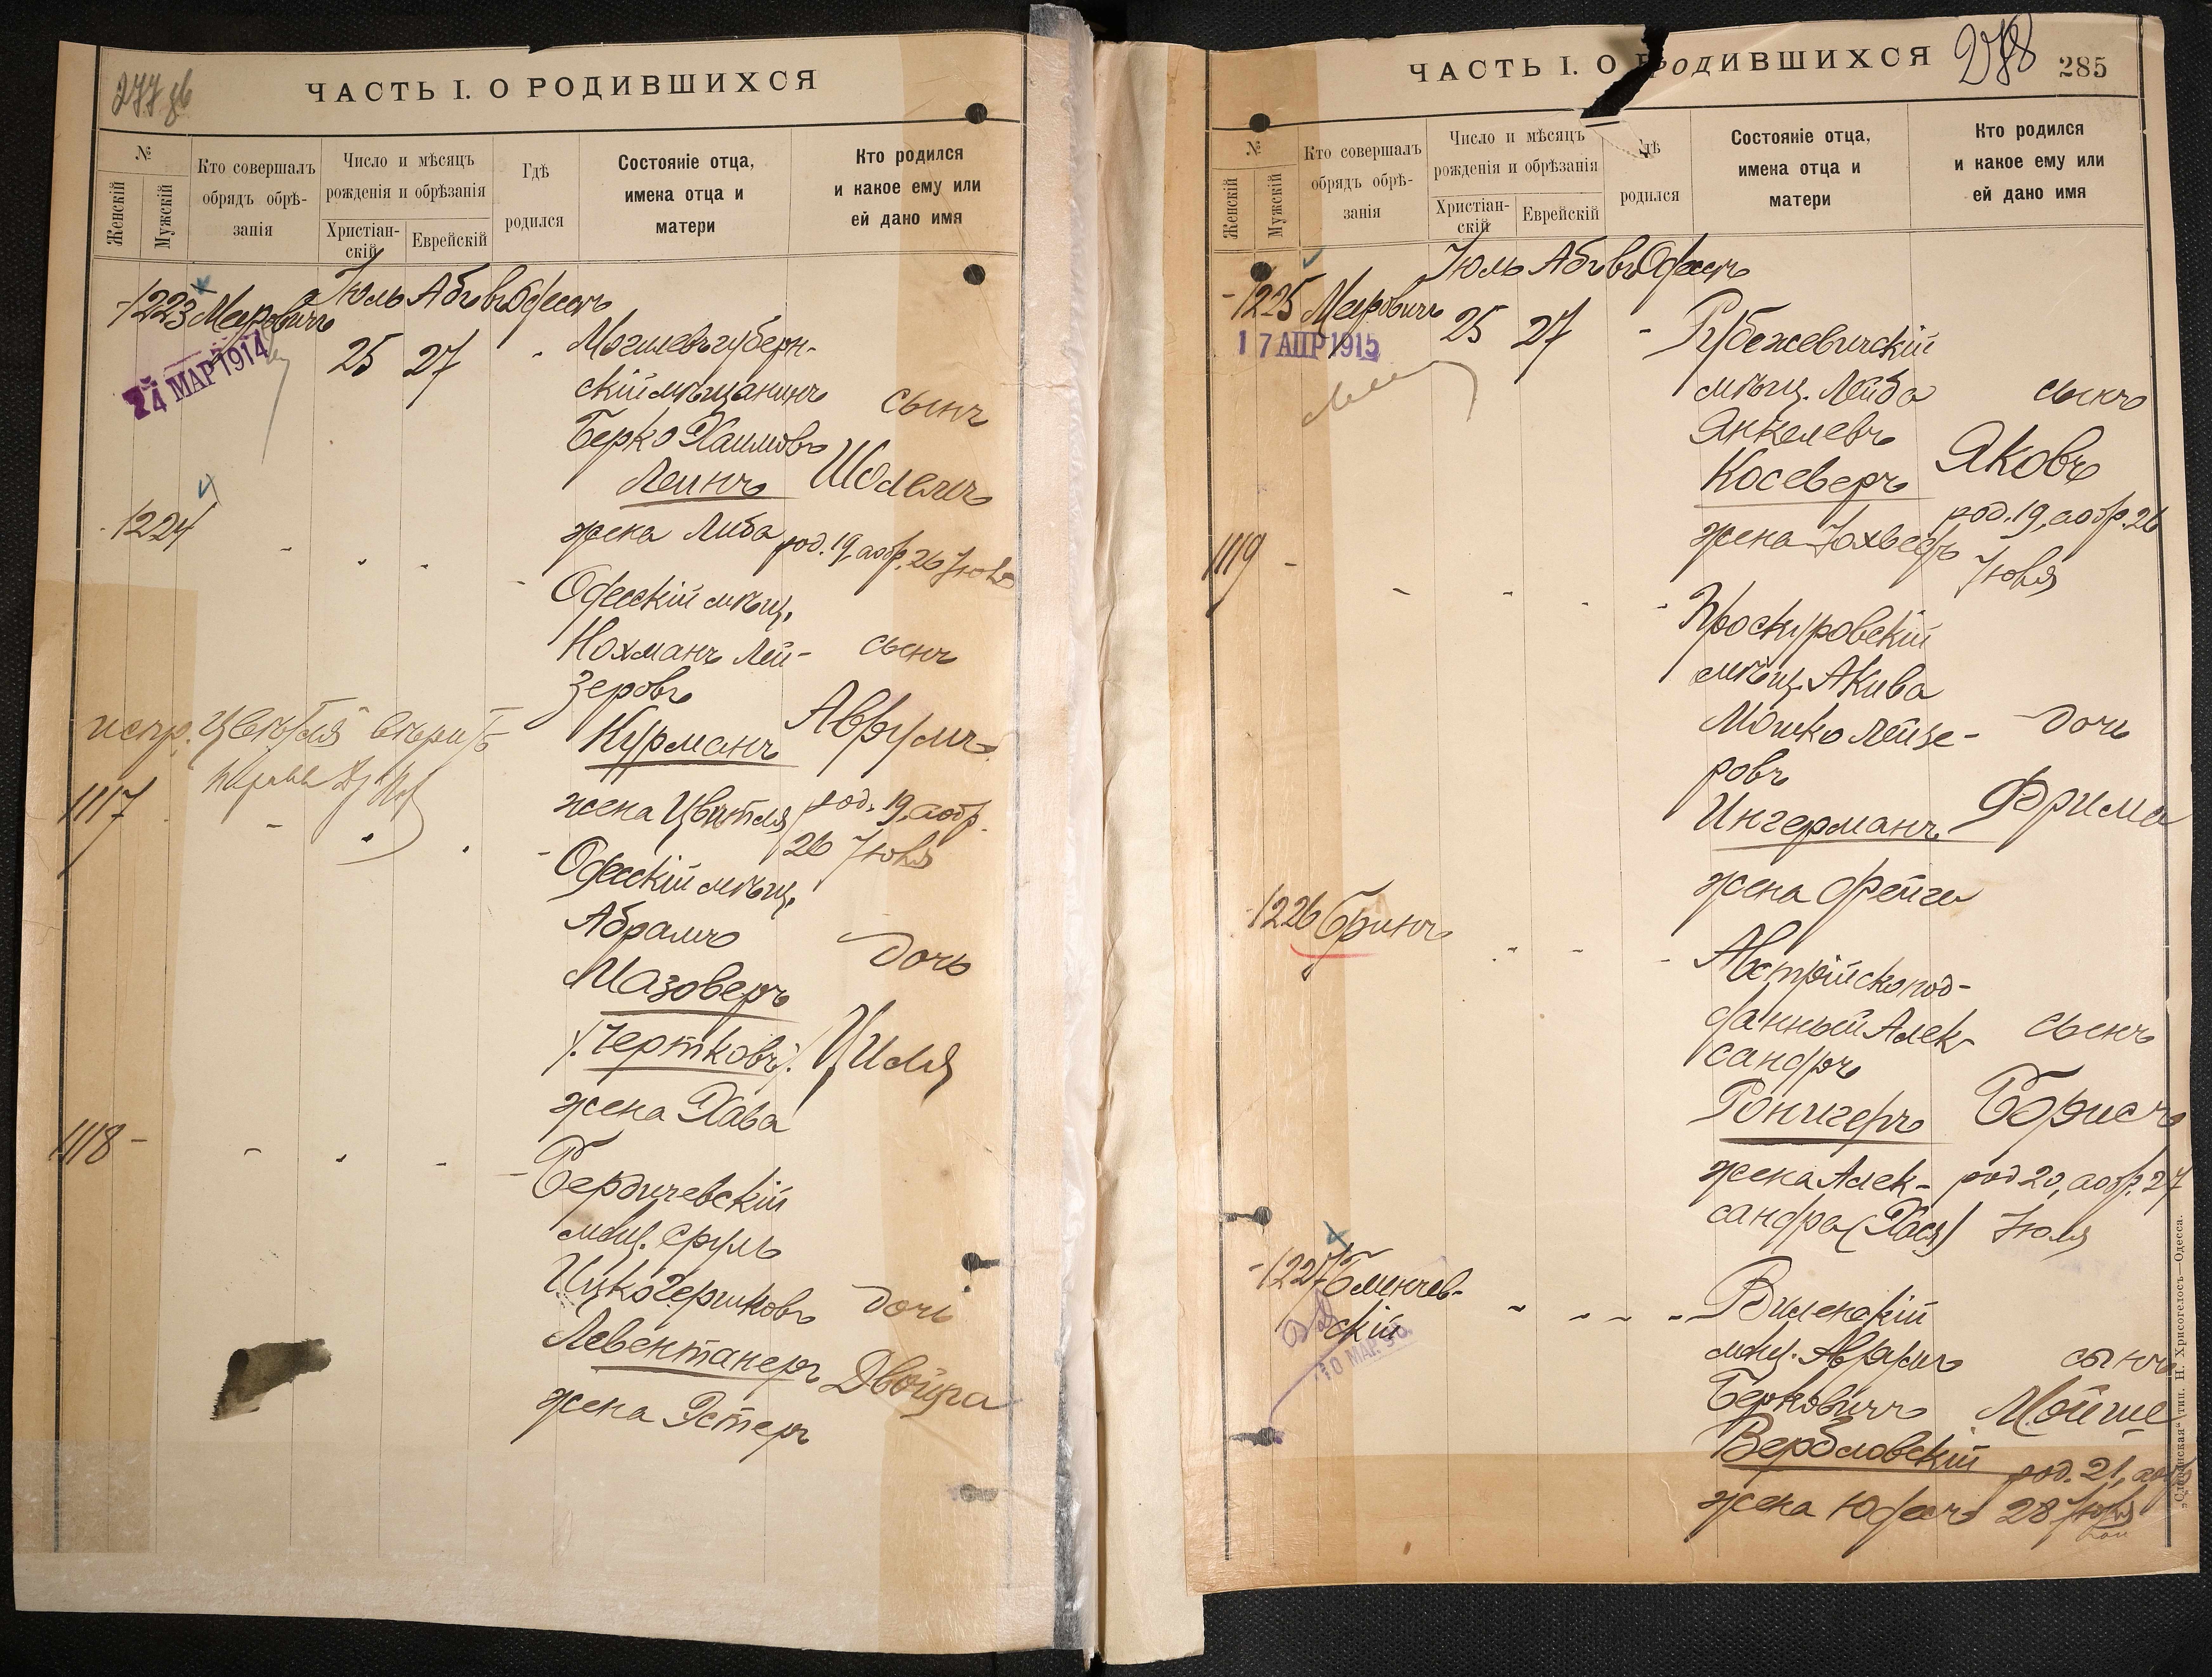 277 об
ЧАСТЬ I. О РОДИВШИХСЯ
№
Женскій
Мужскій
Кто совершалъ
обрядъ обрѣ-
занія
Число и мѣсяцъ
рожденія и обрѣзанія
Христіан-
скій
Еврейскій
Гдѣ
родился
Состояніе отца,
имена отца и
матери
Кто родился
и какое ему или
ей дано имя
Іюль Абъ въ Одессѣ
1223 Мееровичъ
25 27
24 МАР 1914
Могилевъ губерн-
скій мѣщанинъ
Берко Хаимовъ
Леинъ
жена Либа
сынъ
Шолемъ
род. 19, а обр. 26 Іюля
1224
Одесскій мѣщ.
Нохманъ Лей-
зеровъ
Курманъ
жена Цвитля
сынъ
Аврумъ
род. 19, а обр.
26 Іюля
испр.
1117
Одесскій мѣщ.
Абрамъ
Мазоверъ
(Чертковъ).
жена Хава
дочь
Циля
1118
Бердичевскій
мѣщ. Сруль
Ицко Гершковъ
Левентанеръ
жена Эстеръ
дочь
Двойра
ЧАСТЬ I. О РОДИВШИХСЯ
278
285
№
Женскій
Мужскій
Кто совершалъ
обрядъ обрѣ-
занія
Число и мѣсяцъ
рожденія и обрѣзанія
Христіан-
скій
Еврейскій
Гдѣ
родился
Состояніе отца,
имена отца и
матери
Кто родился
и какое ему или
ей дано имя
Іюль Абъ въ Одессѣ
1225 Мееровичъ 25 27
17 АПР 1915
Рубежевичскій
мѣщ. Лейба
Янкелевъ
Косеверъ
жена Іохведъ
сынъ
Яковъ
род. 19, а обр. 26
Іюля
1119
Проскуровскій
мѣщ. Акива
Мошко Лейзе-
ровъ
Ингерманъ
жена Фейга
дочь
Фрима
1226 Бринъ
Австрійскопод-
данный Алек-
сандръ
Ронигеръ
жена Алек-
сандра (Хася)
сынъ
Борисъ
род 20, а обр. 27
Іюля
1227 Блинчев-
скій
10 МАР.
Виленскій
мѣщ. Аврамъ
Берковичъ
Вербловскій
жена Юдесъ
сынъ
Мойше
род. 21, а обр.
28 Іюля
„Славянская“ тип. Н. Хрисогелосъ—Одесса.